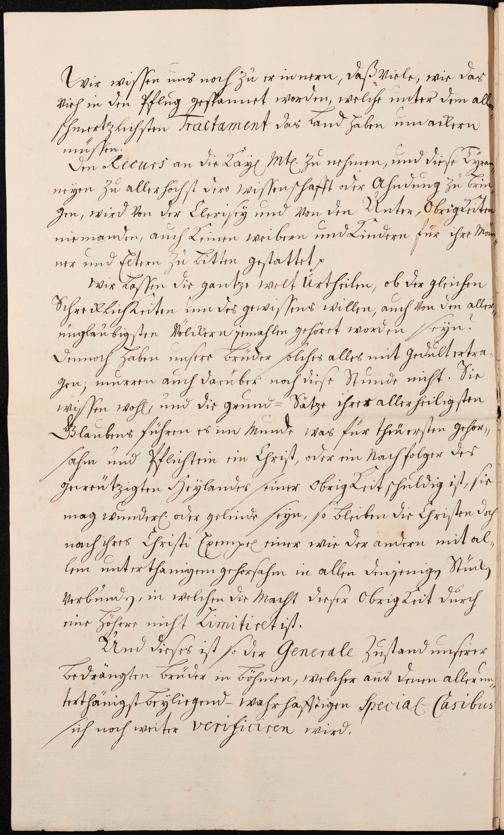 Wir wissen uns noch zu erinnern, daß Viele, wie das
Vieh in den Pflug gespannet worden, welche unter dem aller
schmertzlichsten Tractament das Land haben umackern
müssen.
Den Recurs an die Kayl. Mtt. zu nehmen, und diese Tyran-
neyen zu allerhöchst dero wissenschafft oder Ahndung zu brin-
gen, wird von der Clerisey und von den Unter-Obrigkeiten
niemanden, auch keinen weibern und Kindern für ihre Män-
ner und Eltern zu bitten gestattet.
Wir lassen die gantze welt Urtheilen, ob der gleichen
Schrecklichkeiten um des gewissens willen, auch von den aller-
ungläubigsten Völckern jemahlen gehöret worden seyn?
Dennoch haben unsere brüder solches alles mit gedult ertra-
gen, murren auch darüber noch diese Stunde nicht. Sie
wissen wohl, und die grund-Sätze ihres allerheiligsten
Glaubens führen es im Munde was für theüersten gehor-
sahm und Pflichten ein Christ, oder ein Nachfolger des
gecreützigten Heylandes seiner Obrigkeit schuldig ist, sie
mag wunderl. oder gelinde seyn, so bleiben die Christen doch
nach ihres Christi Exempel einer wie der andern mit al-
lem unterthänigem gehorsahm in allen denjenigen Stücken
verbunden, in welchen die Macht dieser Obrigkeit durch
eine höhere nicht Limitiret ist.
Und dieses ist so der Generale Zustand unserer
bedrängten brüder in böhmen, welcher aus denen aller un-
terthänigst beyliegend-wahrhafftigen Special-Casibus
sich noch weiter verificiren wird.